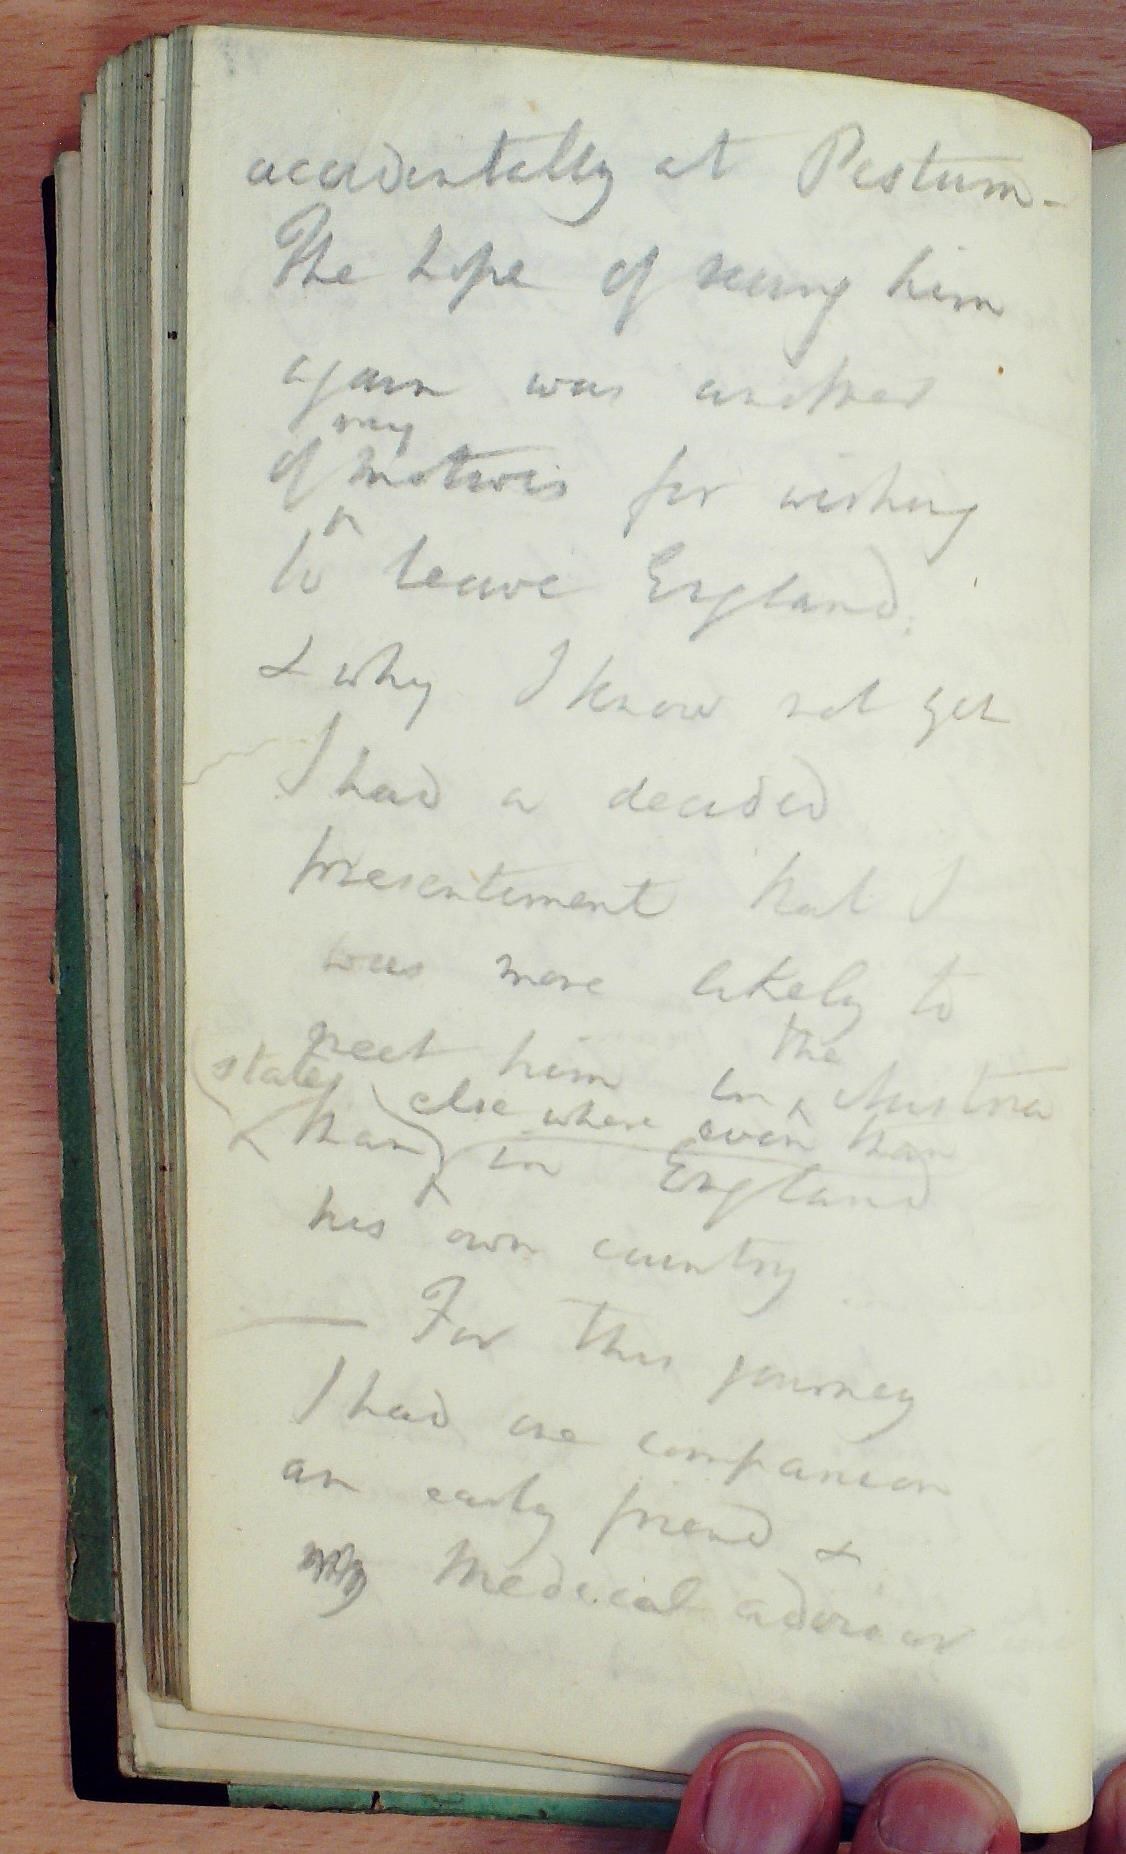 accidentally at Pestum -
The hope of seeing him
again was another
my
of motives for wishing
to leave England,
& why I know not yet
I had a decided
presentiment that I
was more likely to
the
meet him in Austria
states else where even than
than in England
his own country
— For this journey
I had one companion
an early friend &
my Medical advisor